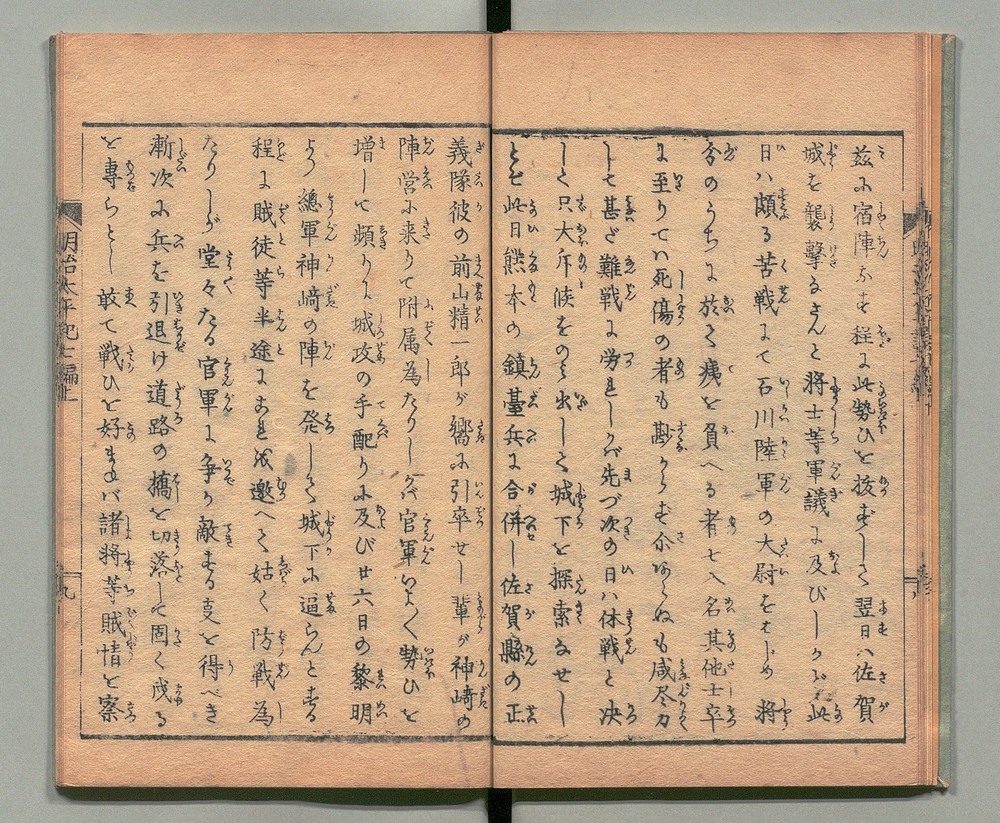 茲に宿陣なす程に此勢ひを抜ずして翌日ハ佐賀
城を襲撃なさんと将士等軍議に及びしかど此
日ハ頗る苦戦にて石川陸軍の大尉をはじめ将
官のうちに於て痍を負へる者七八名其他士卒
に至りてハ死傷の者も尠からず尓のミならぬも咸尽力
して甚だ難戦に労れしかバ先づ次の日ハ休戦と决
して只大斥候をのミ出して城下を探索なせし
とぞ此日熊本の鎮臺兵に合併し佐賀縣の正
義隊彼の前山精一郎が嚮に引卒せし輩が神崎の
陣営に来りて附属為たりしかバ官軍いよ〳〵勢ひを
増して頻りに城攻の手配りに及び廿六日の黎明
より總軍神﨑の陣を発して城下に逼らんとする
程に賊徒等半途にこれを邀へて姑く防戦為
たりしが堂々たる官軍に争か敵する事を得べき
漸次に兵を引退け道路の橋を切落して固く戍る
を専らとし敢て戦ひを好まねバ諸将等賊情を察
明治太平記七編上
九